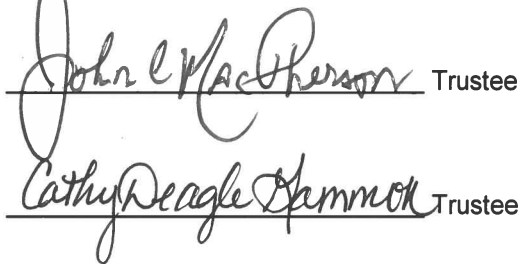 John C MacPherson Trustee
Cathy Deagle Gammon Trustee